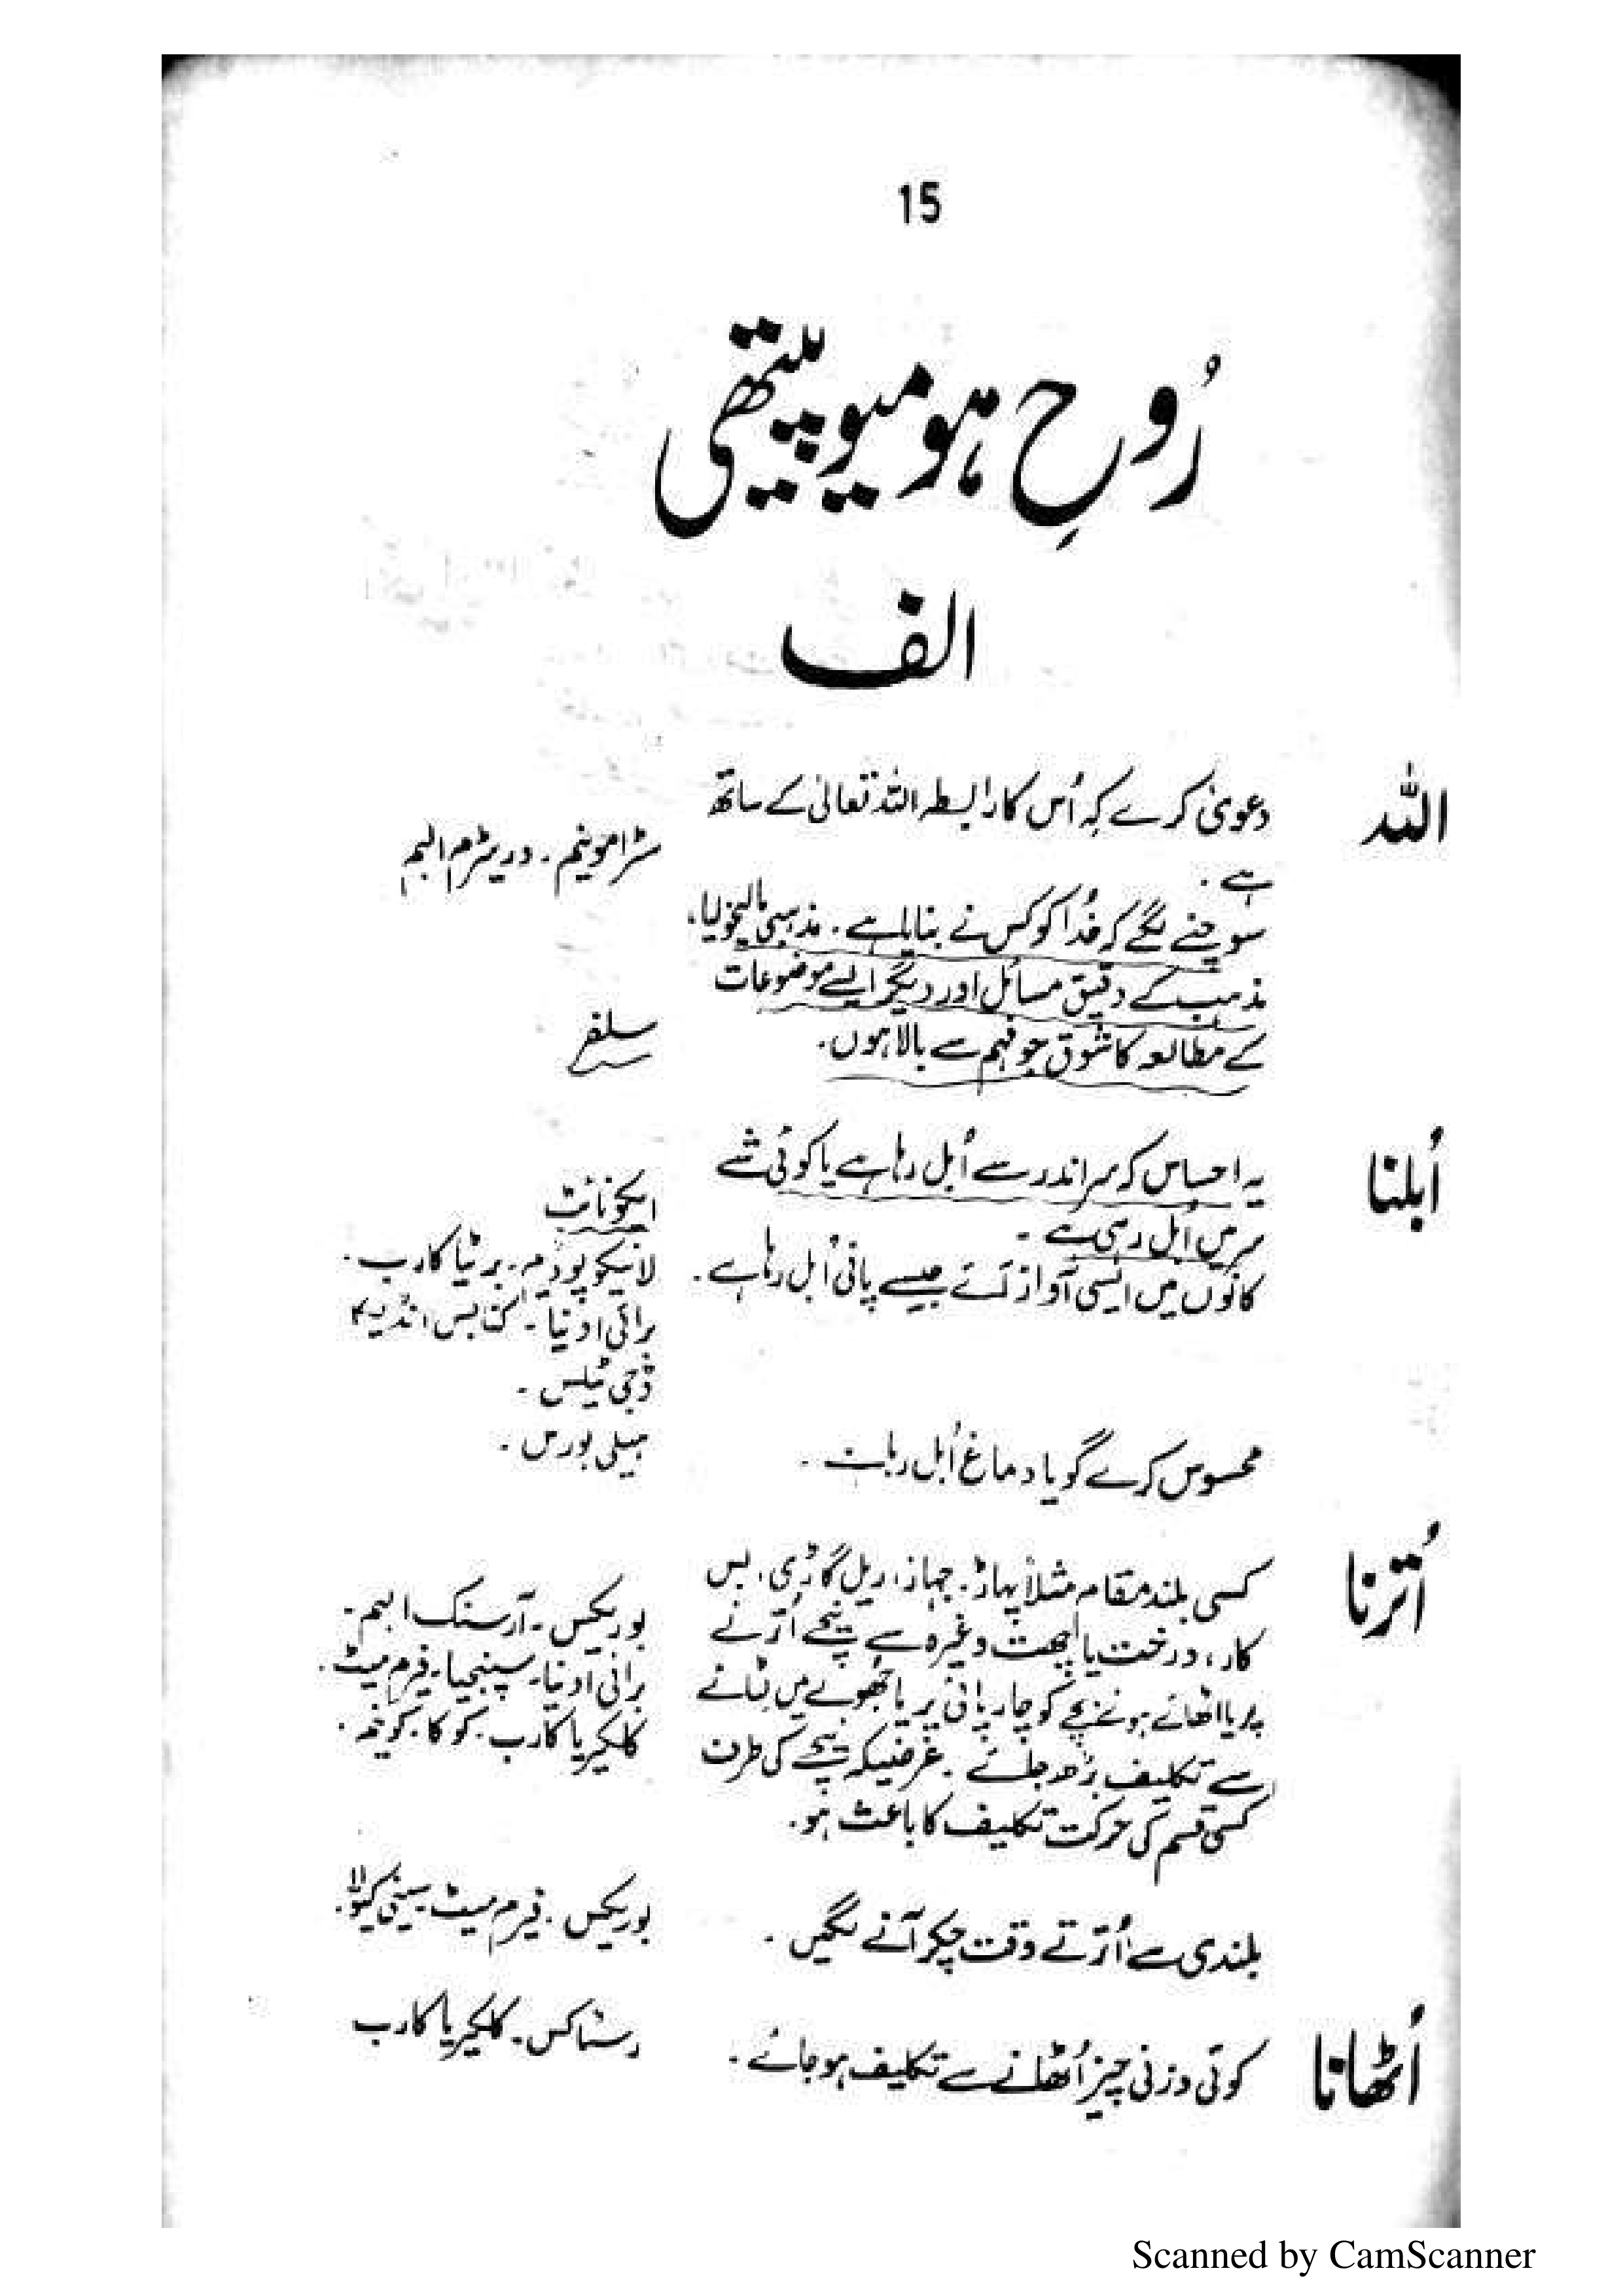 15
رُوحِ ہومیوپیتھی
الف
اللہ
دعویٰ کرے کہ اُس کا رابطہ اللہ تعالیٰ کے ساتھ
ہے۔
سٹرامونیم۔ وریٹرم البم
سوچنے لگے کہ خُدا کو کس نے بنایا ہے۔ مذہبی مالیخولیا،
مذہب کے دقیق مسائل اور دیگر ایسے موضوعات
کے مطالعہ کا شوق جو فہم سے بالا ہوں۔
سلفر
اُبلنا
یہ احساس کہ سر اندر سے اُبل رہا ہے یا کوئی شے
سر میں اُبل رہی ہے۔
ایکونائٹ
کانوں میں ایسی آواز آئے جیسے پانی اُبل رہا ہے۔
لائیکوپوڈیم۔ برٹیا کارب۔
برائی اونیا۔ کنابس انڈیکا
ڈجی ٹیلس۔
محسوس کرے گویا دماغ اُبل رہا ہے۔
ہیلی بورس۔
اُترنا
کسی بلند مقام مثلاً پہاڑ۔ جہاز، ریل گاڑی، بس
کار، درخت یا چھت وغیرہ سے نیچے اُترنے
پر یا اٹھائے ہوئے بچے کو چارپائی پر یا جھولے میں لٹانے
سے تکلیف بڑھ جائے۔ غرضیکہ نیچے کی طرف
کسی قسم کی حرکت تکلیف کا باعث ہو۔
بوریکس۔ آرسنک البم۔
برائی اونیا۔ سپنجیا۔ فیرم میٹ۔
کلکیریا کارب۔ کوکا۔ کونیم۔
بلندی سے اُترتے وقت چکر آنے لگیں۔
بوریکس۔ فیرم میٹ۔ سینی کیولا۔
اُٹھانا
کوئی وزنی چیز اُٹھانے سے تکلیف ہو جائے۔
رسٹاکس۔ کلکیریا کارب
Scanned by CamScanner